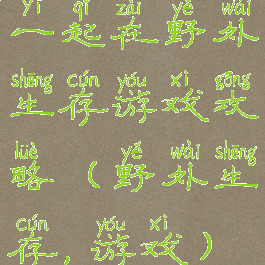 yī qǐ zài yě wài
一起在野外
shēng cún yóu xì gōng
生存游戏攻
lüè yě wài shēng
略（野外生
cún yóu xì
存，游戏）